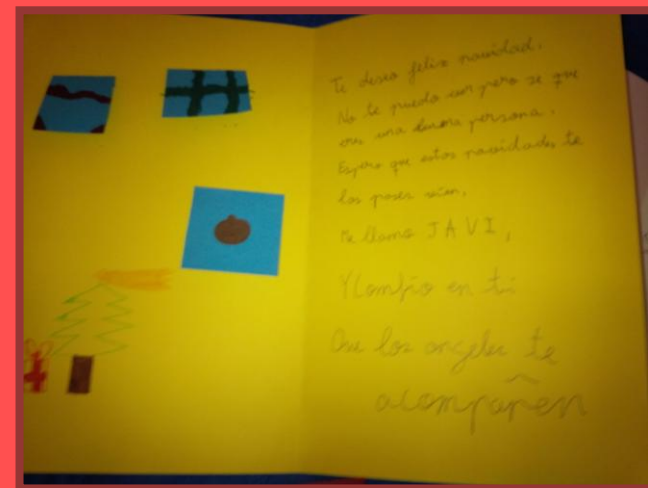 Te deseo feliz navidad.
No te puedo ver pero se que
eres una buena persona.
Espero que estas navidades te
los pases bien.
Me llamo JAVI,
Y Confío en ti
Que los angeles te
acompañen